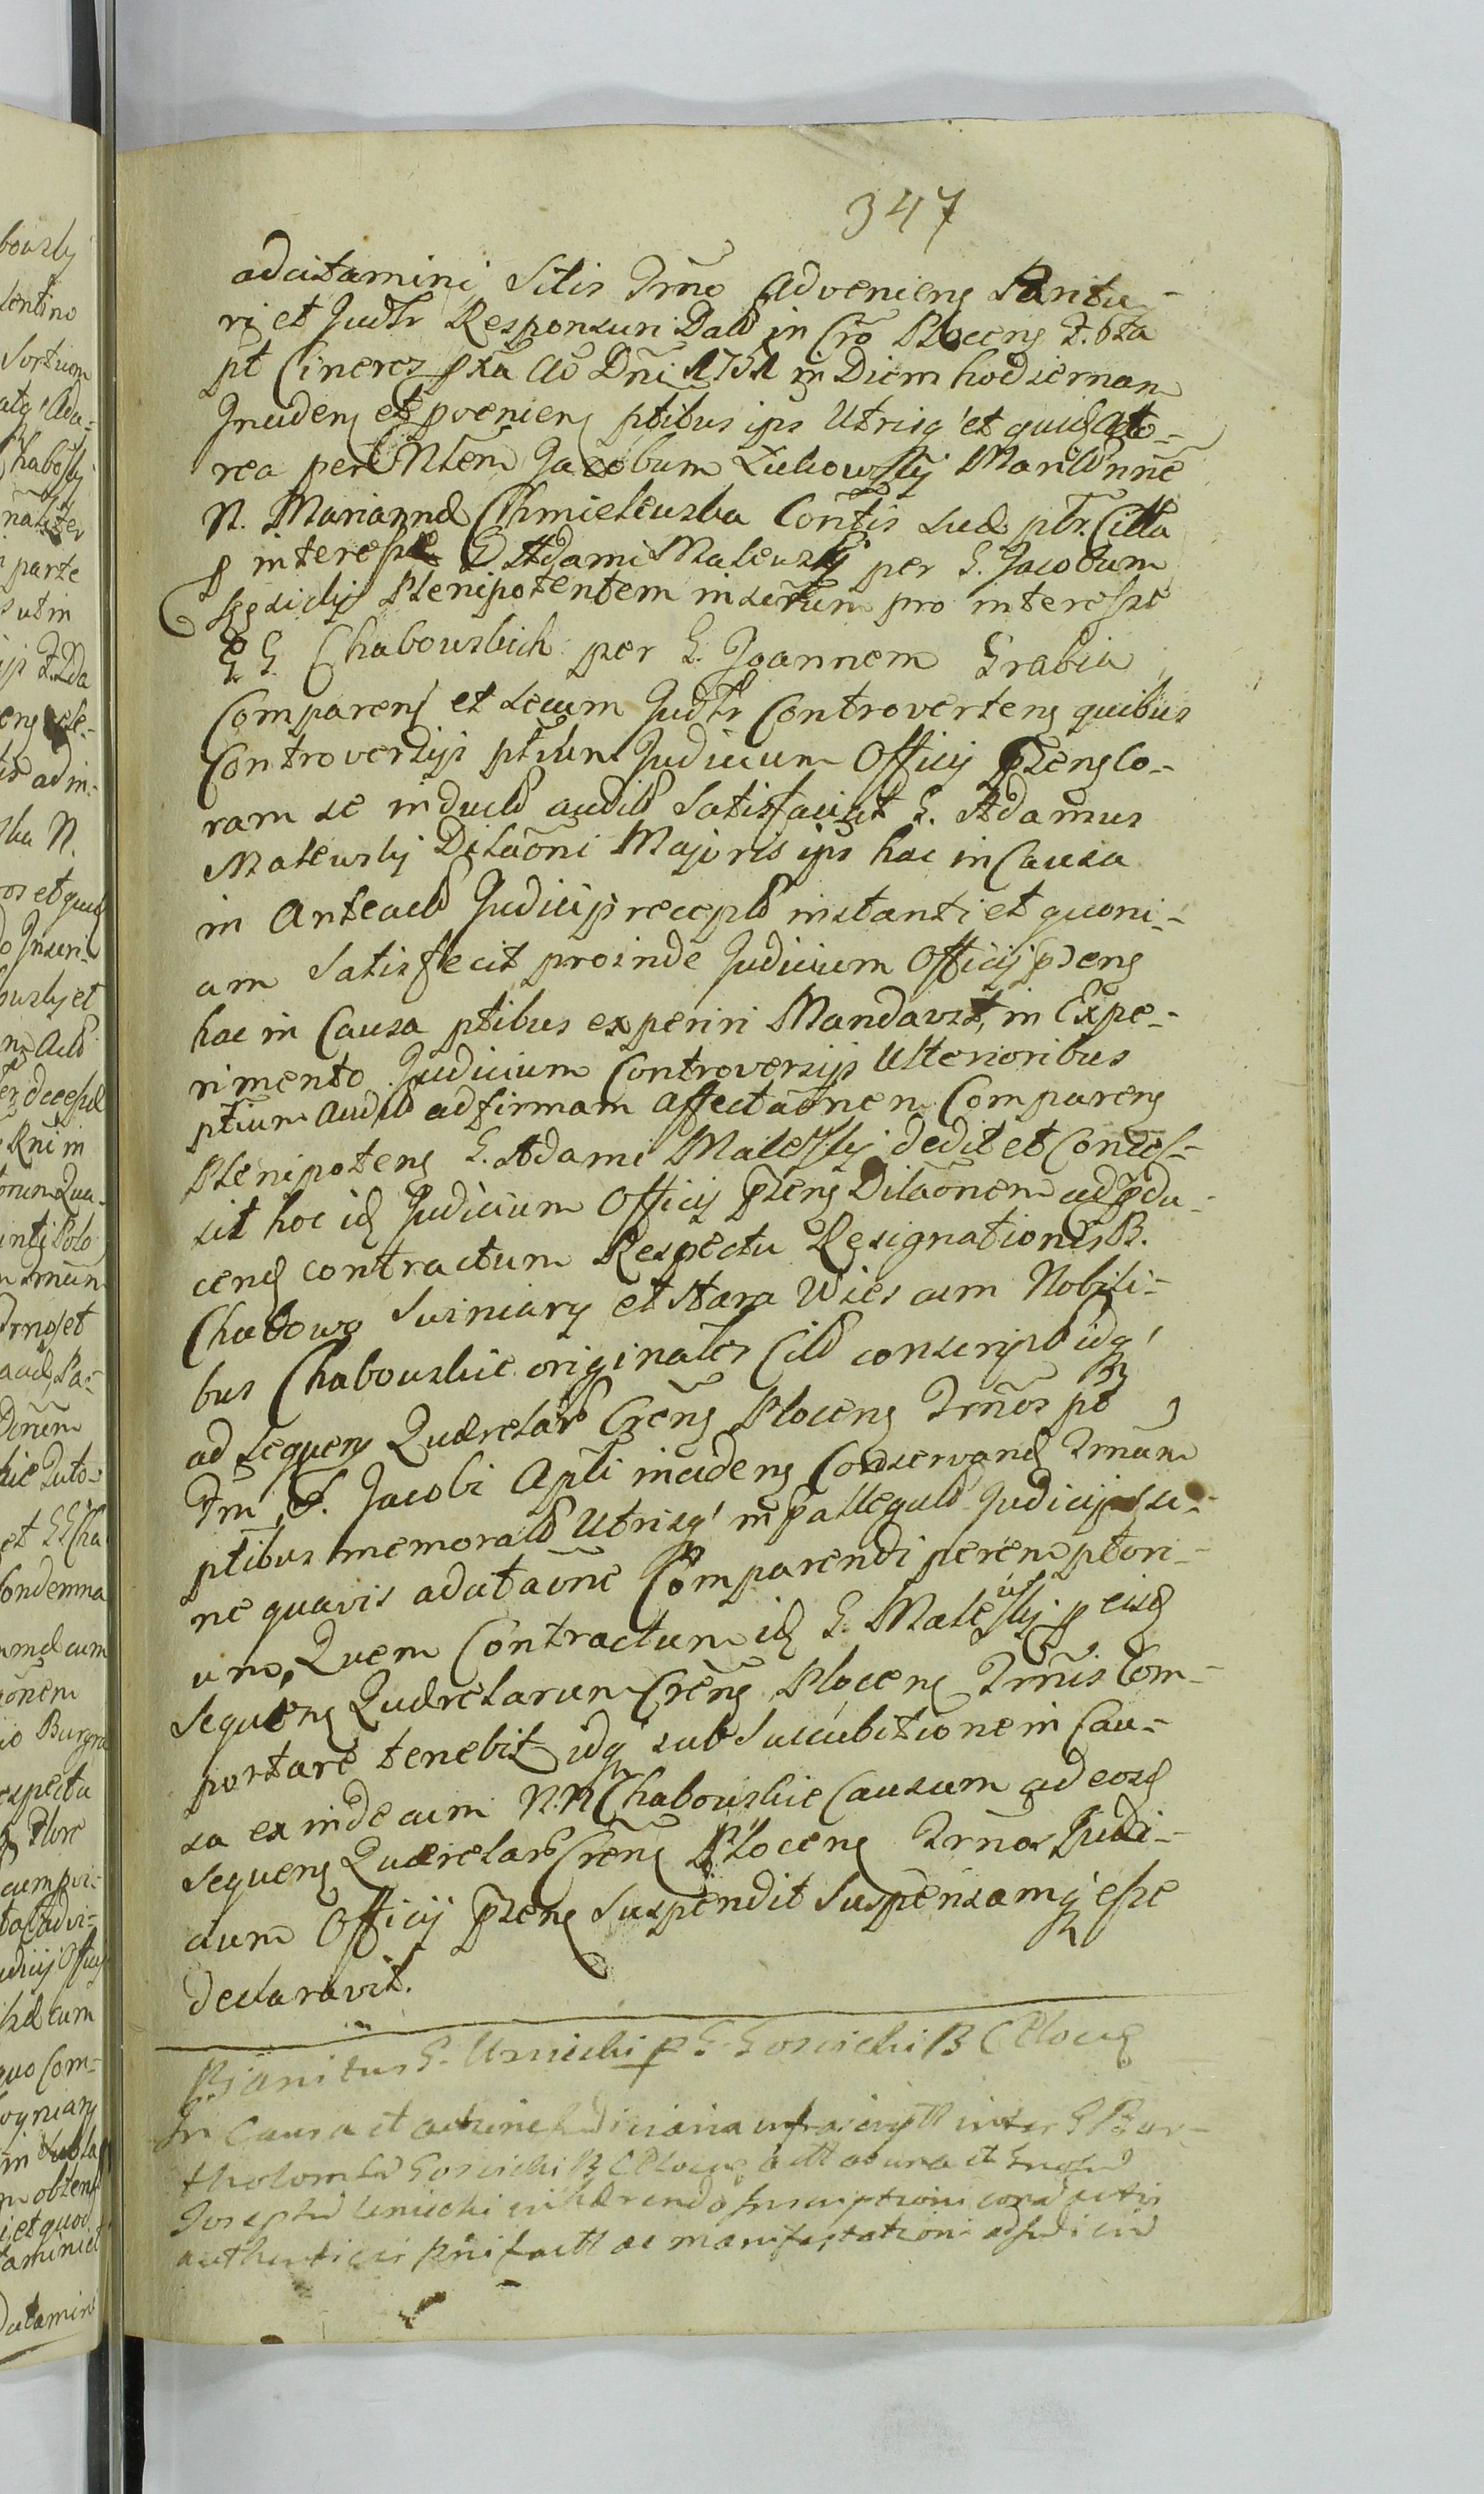 347
adcitamini Sitis Trno Advenieng Paritu-
ri et Judtr Responsuri Datt in Cro Ploceng F. 6ta
pt Cineres pxa Ao Dni 1751 in Diem hodiernam
Incideng et pvenieng ptibus ips Utrisq' et quidem Acto-
rea per Ntem Jacobum Żukowskij Maritum
N. Marianna Chmielewska Contis suae ptr. Citta
p interesse G Adami Malewskij per G. Jacobum
Plenipotentem insertum pro interesse
G G. Chabowskich per G. Joannem Grabia
Compareng et secum Judtr Controverteng quibus
Controversijs ptium Judicium Officij pseng Co-
ram se inductt auditt Satisfaciat G. Adamus
Malewskij Dilaoni Majoris ips hac in Causa
in Anteactt Judicijs receptt instanti et quoni-
am Satisfecit proinde Judicium Officij pseng
hac in Causa ptibus experiri Mandavit, in Expe-
rimento Judicium Controversijs Ulterioribus
ptium auditt ad firmam affectaonem Compareng
Plenipoteng G. Adami Malewskij dedit et Conces-
sit hoc id Judicium Officij pseng Dilaonem ad pdu-
cend contractum Respectu Resignationis B.
Chabowo Swiniary et Stara Wies cum Nobili-
bus Chabowskie originalr Citt conscript idq'
ad sequeng Quaerelar Creng Ploceng Trnos pt
Fm S. Jacobi Apli incideng Conservand Trnum
ptibus memoratt Utrisq' in pallegatt Judicijs si-
ne quavis adcitaone Comparendi peremptori-
um, Quem Contractum id G. Malewskij p eisd
sequeng Quaerelarum Creng Ploceng Trnis Com-
portare tenebit idq sub Succubitione in Cau-
sa exinde cum N.N Chabowskie Causam ad eosd
sequeng Quaerelar Creng Ploceng Trnos Judi-
cium Officij pseng Suspendit Suspensamq' esse
declaravit.
G. Uniechi p G. Goscichi B C Ploceg
In Causa et actione infrascriptt inter G Bar-
tholomeu Gosicki B C Ploceg actt ab una et Gnosu
Joseph Uniecki inhaerendo Inscriptioni
authenticis pni factt ac manifestationi ad Judiciu